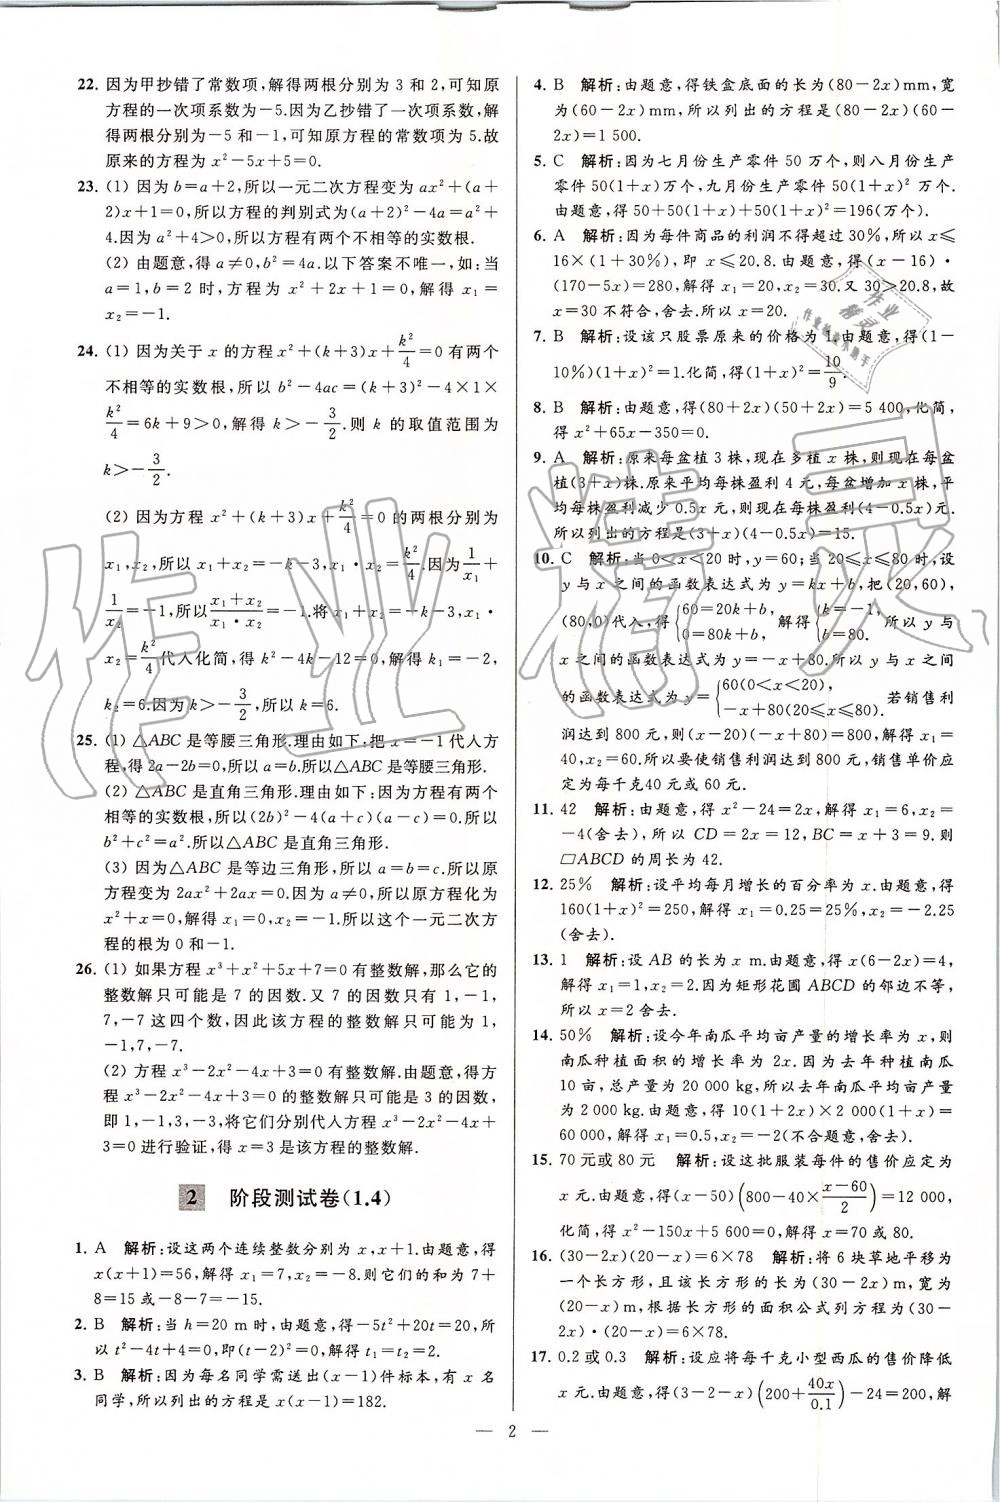 22. 因为甲抄错了常数项,解得两根分别为 3 和 2,可知原
方程的一次项系数为－5.因为乙抄错了一次项系数,解
得两根分别为－5 和－1,可知原方程的常数项为 5.故
原来的方程为 x²－5x＋5＝0.
23. (1) 因为 b＝a＋2,所以一元二次方程变为 ax²＋(a＋
2)x＋1＝0,所以方程的判别式为(a＋2)²－4a＝a²＋
4.因为 a²＋4＞0,所以方程有两个不相等的实数根.
(2) 由题意,得 a≠0,b²＝4a.以下答案不唯一,如:当
a＝1,b＝2 时,方程为 x²＋2x＋1＝0,解得 x₁＝
x₂＝－1.
24. (1) 因为关于 x 的方程 x²＋(k＋3)x＋k²/4＝0 有两个
不相等的实数根,所以 b²－4ac＝(k＋3)²－4×1×
k²/4＝6k＋9＞0,解得 k＞－3/2.则 k 的取值范围为
k＞－3/2.
(2) 因为方程 x²＋(k＋3)x＋k²/4＝0 的两根分别为
x₁,x₂,所以 x₁＋x₂＝－k－3,x₁·x₂＝k²/4.因为1/x₁＋
1/x₂＝－1,所以(x₁＋x₂)/(x₁·x₂)＝－1.将 x₁＋x₂＝－k－3,x₁·
x₂＝k²/4代入化简,得 k²－4k－12＝0,解得 k₁＝－2,
k₂＝6.因为 k＞－3/2,所以 k＝6.
25. (1) △ABC 是等腰三角形.理由如下:把 x＝－1 代入方
程,得 2a－2b＝0,所以 a＝b.所以△ABC 是等腰三角形.
(2) △ABC 是直角三角形.理由如下:因为方程有两个
相等的实数根,所以(2b)²－4(a＋c)(a－c)＝0.所以
b²＋c²＝a².所以△ABC 是直角三角形.
(3) 因为△ABC 是等边三角形,所以 a＝b＝c.所以原
方程变为 2ax²＋2ax＝0.因为 a≠0,所以原方程化为
x²＋x＝0,解得 x₁＝0,x₂＝－1.所以这个一元二次方
程的根为 0 和－1.
26. (1) 如果方程 x³＋x²＋5x＋7＝0 有整数解,那么它的
整数解只可能是 7 的因数.又 7 的因数只有 1,－1,
7,－7 这四个数,因此该方程的整数解只可能为 1,
－1,7,－7.
(2) 方程 x³－2x²－4x＋3＝0 有整数解.由题意,得方
程 x³－2x²－4x＋3＝0 的整数解只可能是 3 的因数,
即 1,－1,3,－3,将它们分别代入方程 x³－2x²－4x＋
3＝0 进行验证,得 x＝3 是该方程的整数解.
2 阶段测试卷(1.4)
1. A 解析:设这两个连续整数分别为 x,x＋1.由题意,得
x(x＋1)＝56,解得 x₁＝7,x₂＝－8.则它们的和为 7＋
8＝15 或－8－7＝－15.
2. B 解析:当 h＝20 m时,由题意,得－5t²＋20t＝20,所
以 t²－4t＋4＝0,即(t－2)²＝0,解得 t₁＝t₂＝2.
3. B 解析:因为每名同学需送出(x－1)件标本,有 x 名
同学,所以列出的方程是 x(x－1)＝182.
4. B 解析:由题意,得铁盒底面的长为(80－2x)mm,宽
为(60－2x)mm,所以列出的方程是(80－2x)(60－
2x)＝1 500.
5. C 解析:因为七月份生产零件 50 万个,则八月份生产
零件 50(1＋x)万个,九月份生产零件 50(1＋x)² 万个.
由题意,得 50＋50(1＋x)＋50(1＋x)²＝196(万个).
6. A 解析:因为每件商品的利润不得超过 30%,所以 x≤
16×(1＋30%),即 x≤20.8.由题意,得(x－16)·
(170－5x)＝280,解得 x₁＝20,x₂＝30.又 30＞20.8,故
x＝30 不符合,舍去.所以 x＝20.
7. B 解析:设该只股票原来的价格为 1.由题意,得(1－
10%)(1＋x)²＝1.化简,得(1＋x)²＝10/9.
8. B 解析:由题意,得(80＋2x)(50＋2x)＝5 400,化简,
得 x²＋65x－350＝0.
9. A 解析:原来每盆植 3 株,现在多植 x 株,则现在每盆
植(3＋x)株.原来平均每株盈利 4 元,每盆增加 x 株,平
均每株盈利减少 0.5x 元,则现在每株盈利(4－0.5x)元.
所以列出的方程是(3＋x)(4－0.5x)＝15.
10. C 解析:当 0＜x＜20 时,y＝60;当 20≤x≤80 时,设
y 与 x 之间的函数表达式为 y＝kx＋b,把(20,60),
(80,0)代入,得{60＝20k＋b, 0＝80k＋b, 解得{k＝－1, b＝80. 所以 y 与
x 之间的函数表达式为 y＝－x＋80.所以 y 与 x 之间
的函数表达式为 y＝{60(0＜x＜20), －x＋80(20≤x≤80). 若销售利
润达到 800 元,则(x－20)(－x＋80)＝800,解得 x₁＝
40,x₂＝60.所以要使销售利润达到 800 元,销售单价应
定为每千克40 元或 60 元.
11. 42 解析:由题意,得 x²－24＝2x,解得 x₁＝6,x₂＝
－4(舍去),所以 CD＝2x＝12,BC＝x＋3＝9.则
▱ABCD 的周长为 42.
12. 25% 解析:设平均每月增长的百分率为 x.由题意,得
160(1＋x)²＝250,解得 x₁＝0.25＝25%,x₂＝－2.25
(舍去).
13. 1 解析:设 AB 的长为 x m.由题意,得 x(6－2x)＝4,
解得 x₁＝1,x₂＝2.因为矩形花圃 ABCD 的邻边不等,
所以 x＝2 舍去.
14. 50% 解析:设今年南瓜平均亩产量的增长率为 x,则
南瓜种植面积的增长率为 2x.因为去年种植南瓜
10 亩,总产量为 20 000 kg,所以去年南瓜平均亩产量
为 2 000 kg.由题意,得 10(1＋2x)×2 000(1＋x)＝
60 000,解得 x₁＝0.5,x₂＝－2(不合题意,舍去).
15. 70 元或 80 元 解析:设这批服装每件的售价应定为
x 元.由题意,得(x－50)(800－40×(x－60)/2)＝12 000,
化简,得 x²－150x＋5 600＝0,解得 x＝70 或 80.
16. (30－2x)(20－x)＝6×78 解析:将 6 块草地平移为
一个长方形,且该长方形的长为(30－2x)m,宽为
(20－x)m,根据长方形的面积公式列方程为(30－
2x)·(20－x)＝6×78.
17. 0.2 或 0.3 解析:设应将每千克小型西瓜的售价降低
x 元.由题意,得(3－2－x)(200＋40x/0.1)－24＝200,解
— 2 —
作业精灵